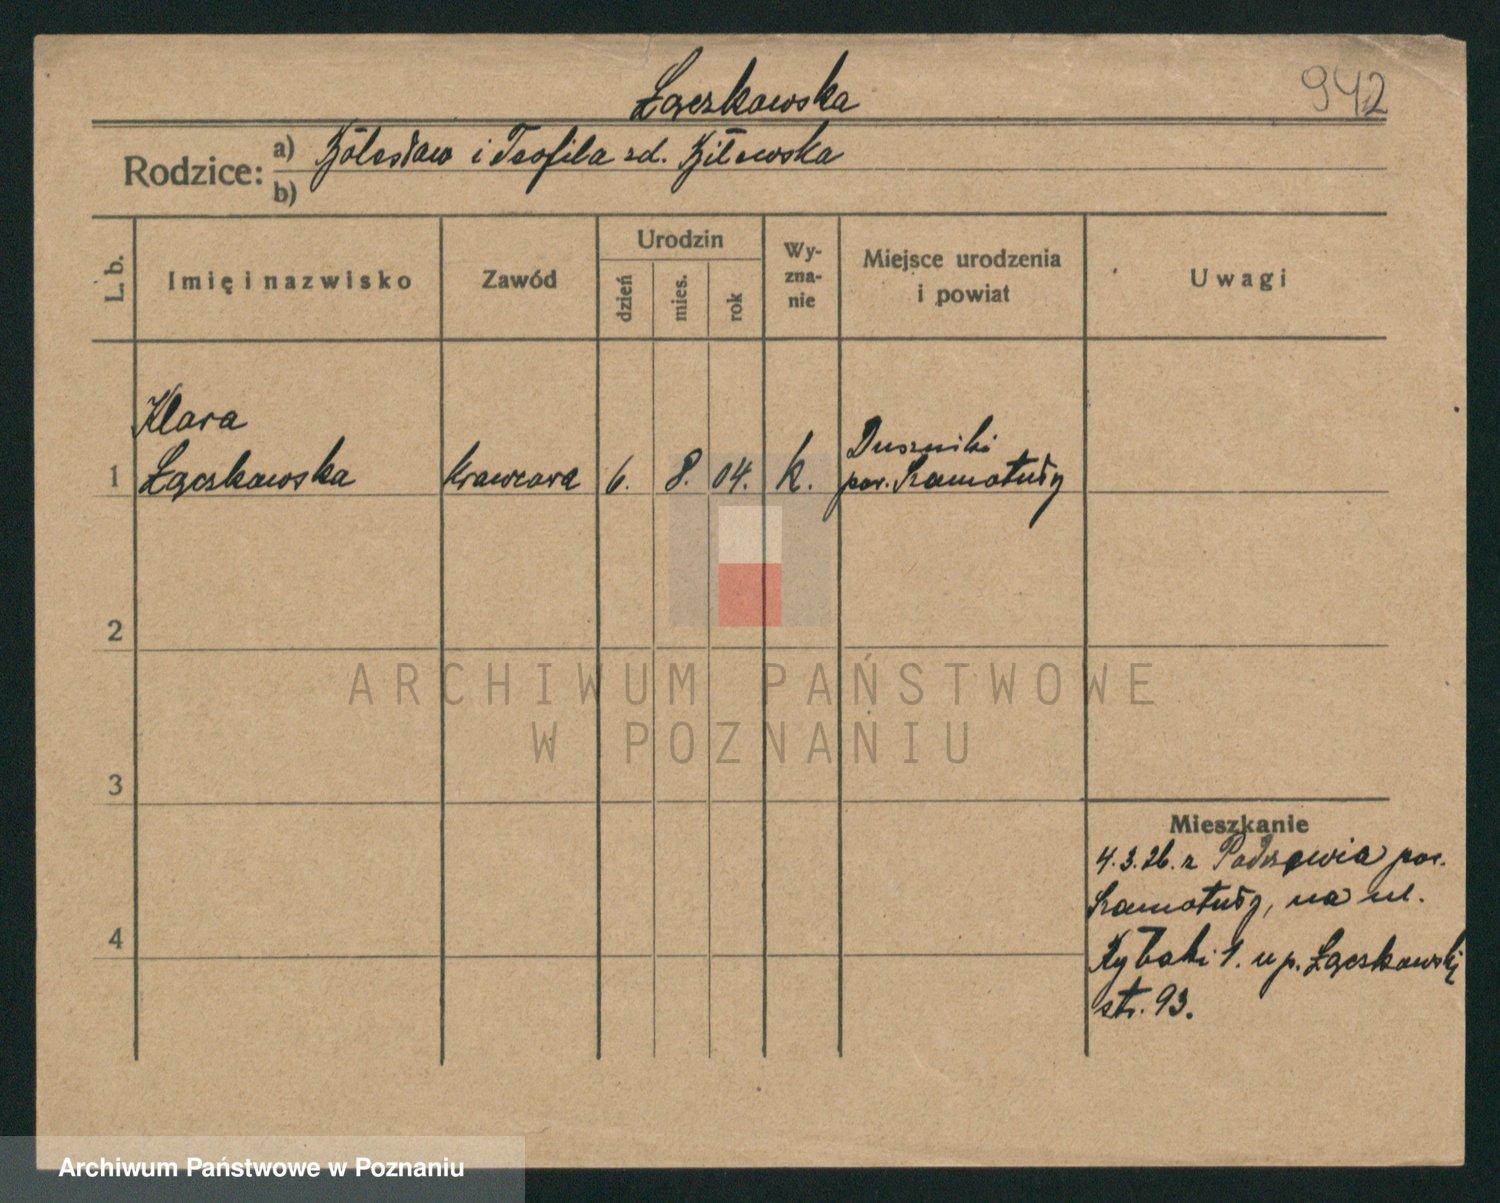 942
Łączkowska
Rodzice: a) Bolesław i Teofila zd. Bilewska
b)
L. b.
Imię i nazwisko
Zawód
Urodzin
dzień
mies.
rok
Wy-
zna-
nie
Miejsce urodzenia
i powiat
Uwagi
Klara
Łączkowska
1
krawcowa
6.
8.
04.
k.
Duszniki
pow. Szamotuły
2
3
4
Mieszkanie
4.3.26. z pow.
Szamotuły, na ul.
Rybaki 1. u p. Łączkowskiej
str. 93.
ARCHIWUM PAŃSTWOWE
W POZNANIU
Archiwum Państwowe w Poznaniu